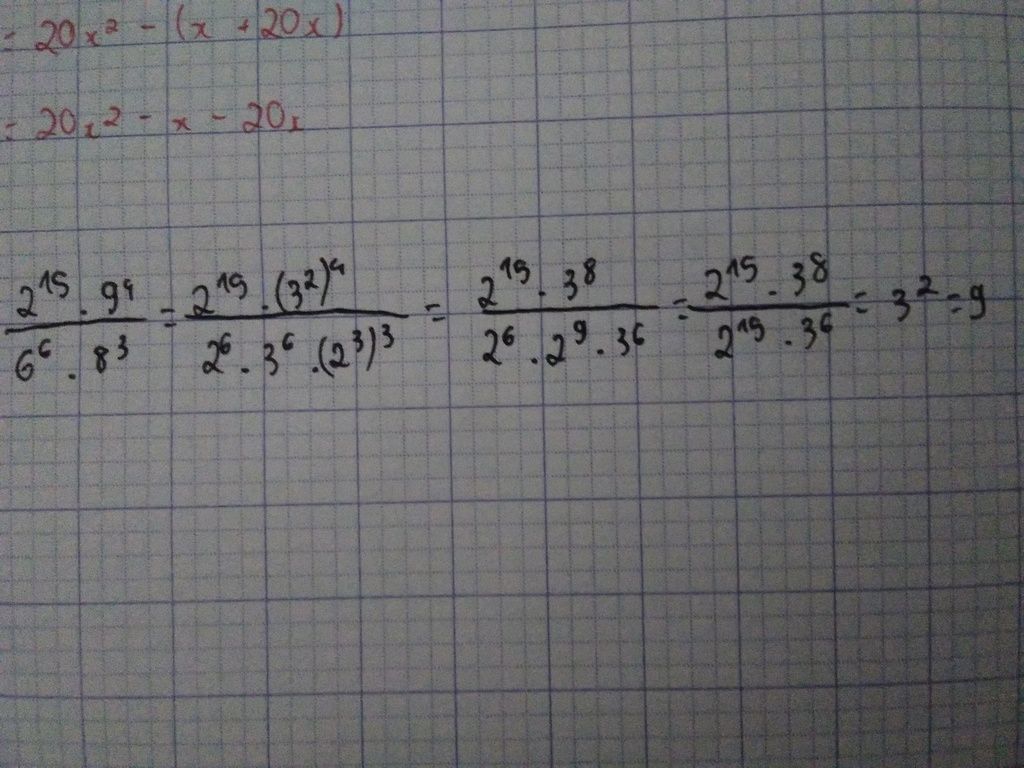 = 20x² - (x + 20x)
= 20x² - x - 20x
\frac{2^{15} \cdot 9^4}{6^6 \cdot 8^3} = \frac{2^{15} \cdot (3^2)^4}{2^6 \cdot 3^6 \cdot (2^3)^3} = \frac{2^{15} \cdot 3^8}{2^6 \cdot 2^9 \cdot 3^6} = \frac{2^{15} \cdot 3^8}{2^{15} \cdot 3^6} = 3^2 = 9